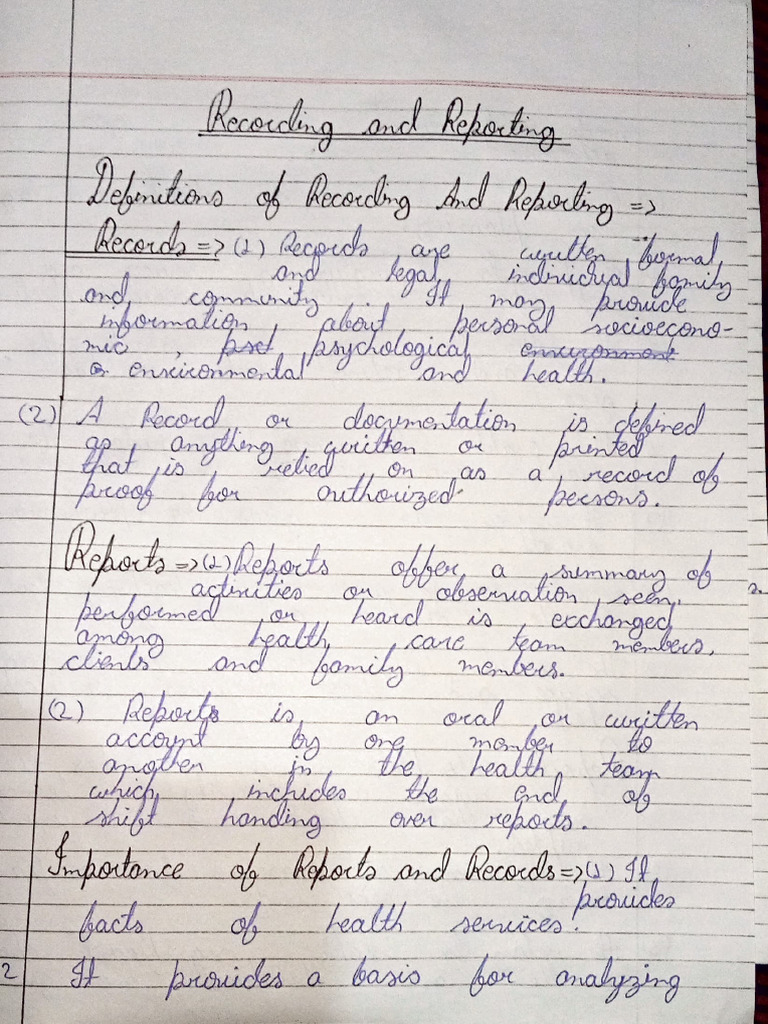 Recording and Reporting
Definitions of Recording And Reporting =>
Records => (1) Records are written, formal,
and legal, individual family
and, community. It, may, provide
information, about personal socioecono-
mic, psct psychological, environment
& environmental and health.
(2) A Record, or documentation is defined
as, anything, written or printed
that is, relied, on as a, record of
proof for authorized persons.
Reports => (1) Reports offer, a summary of
activities or observation, seen,
performed or heard is exchanged,
among health, care team members,
clients and family members.
(2) Reports is, an oral or written
account by one member to
another in the health team
which, includes the end of
shift handing over reports.
Importance of Reports and Records => (1) It,
provides
facts of health services.
2 It provides a basis for analyzing
2.